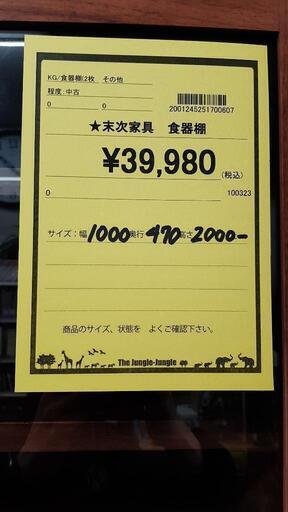 KG/食器棚(2枚 その他
程度:中古
0 0
2001245251700607
★末次家具 食器棚
¥39,980
(税込)
0 100323
サイズ:幅1000奥行470高さ2000-
商品のサイズ、状態を よくご確認下さい。
The Jungle-Jungle